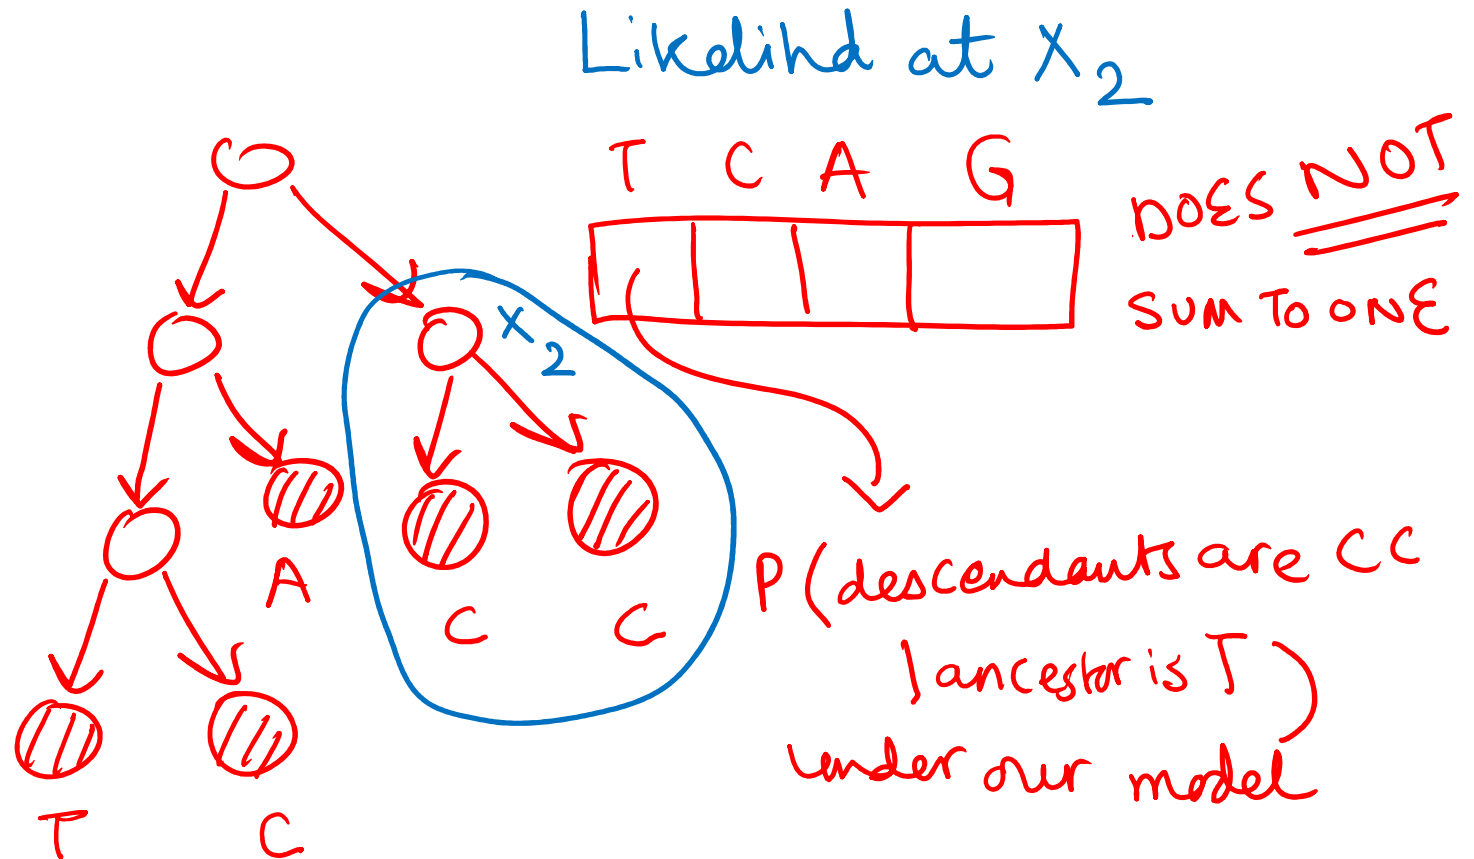 Likelihd at X2
T C A G
DOES NOT
SUM TO ONE
X2
A
C C
P(descendants are CC
| ancestor is T)
under our model
T C